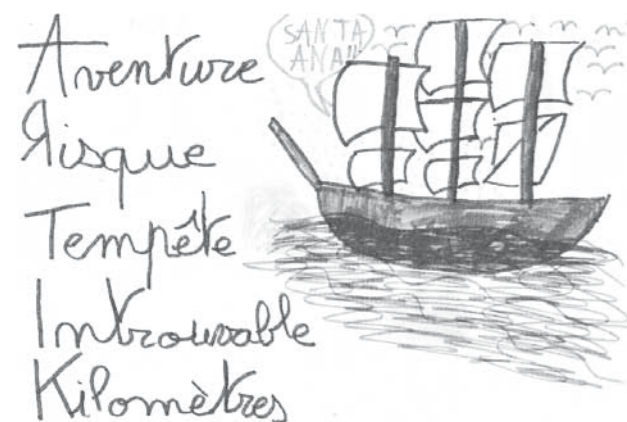 Aventure
Risque
Tempête
Introuvable
Kilomètres
SANTA
ANA!!